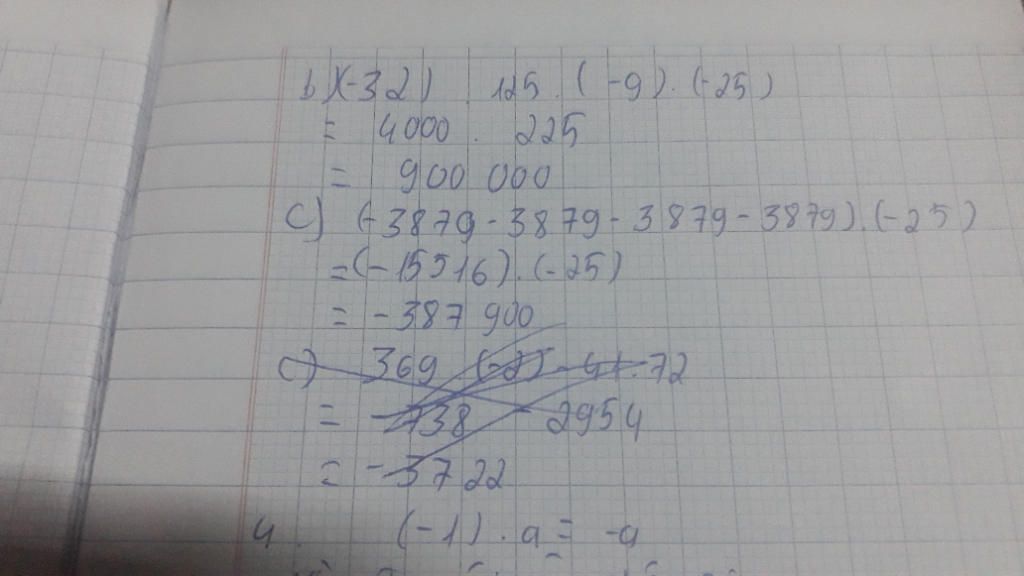 b) (-32) . 125 . (-9) . (-25)
= 4000 . 225
= 900 000
c) (-3879 - 3879 - 3879 - 3879) . (-25)
= (-15516) . (-25)
= -387 900
c) 369 (-2) - 41 . 72
= -738 - 2954
= -3722
4. (-1) . a = -a